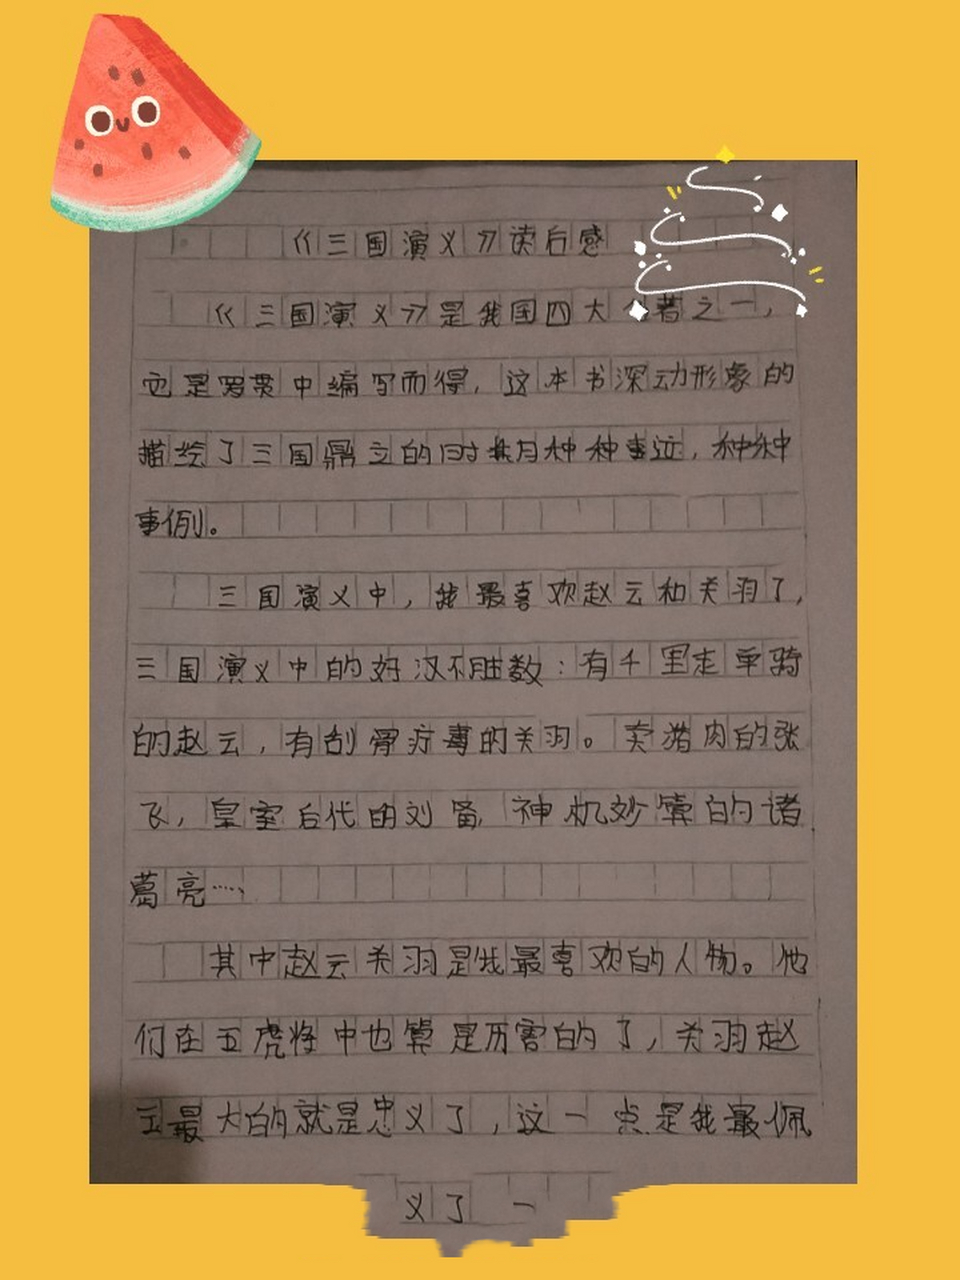 《三国演义》读后感
《三国演义》是我国四大名著之一，
也是罗贯中编写而得，这本书深动形象的
描绘了三国鼎立的时期种种事迹，种种
事例。
三国演义中，我最喜欢赵云和关羽了，
三国演义中的好汉不胜数：有千里走单骑
的赵云，有刮骨疗毒的关羽。卖猪肉的张
飞，皇室后代的刘备，神机妙算的诸
葛亮……
其中赵云关羽是我最喜欢的人物。他
们在五虎将中也算是厉害的了，关羽赵
云最大的就是忠义了，这一点是我最佩
义了 一